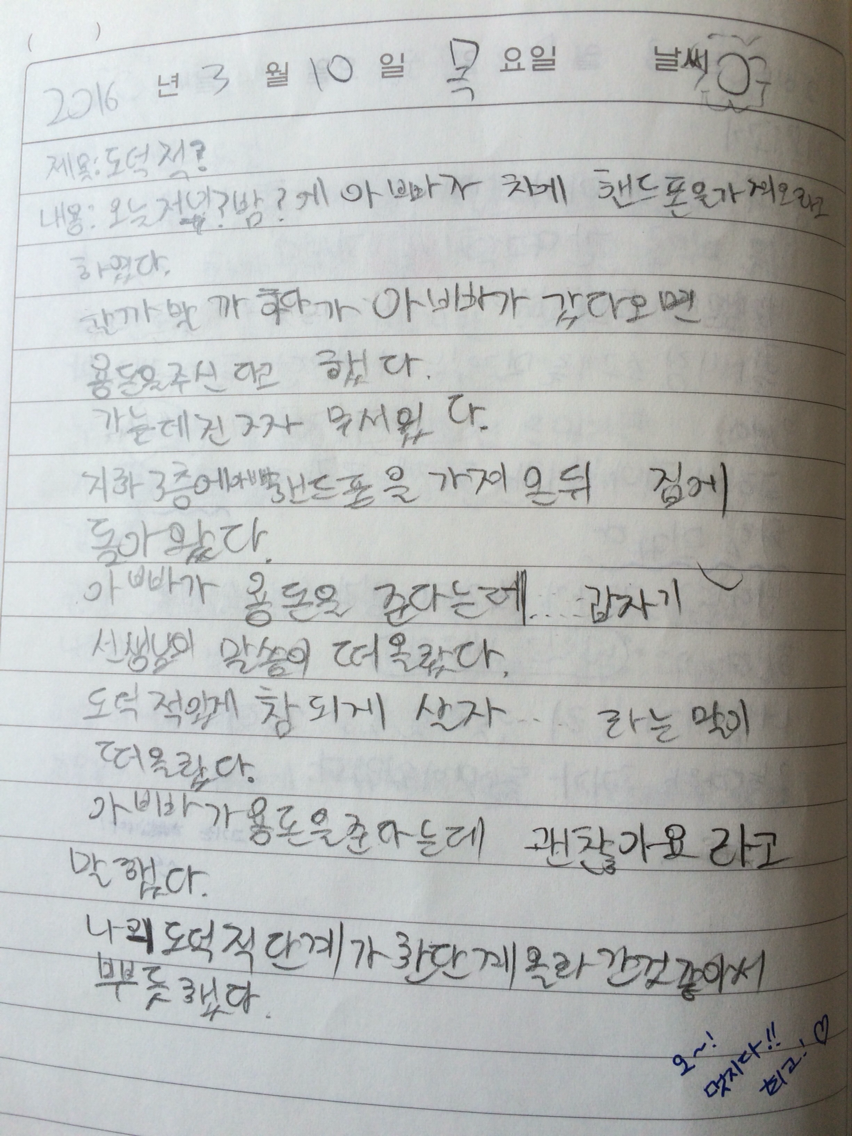 (          )
2016 년 3 월 10 일 목 요일 날씨
제목: 도덕적?
내용: 오늘 저녁? 밤? 게 아빠가 차에 핸드폰을 가져오라고
하였다.
할까 말까 하다가 아빠가 갔다오면
용돈을 주신다고 했다.
가는데 진짜 무서웠다.
지하 3층에 아빠 핸드폰을 가져온뒤 집에
돌아왔다.
아빠가 용돈을 준다는데.... 갑자기
선생님의 말씀이 떠올랐다.
도덕적있게 참되게 살자 라는 말이
떠올랐다.
아빠가 용돈을 준다는데 괜찮가요 라고
말했다.
나의 도덕적 단계가 한단계 올라간것 좋아서
뿌듯했다.
오~!
멋지다!!
최고! ♡